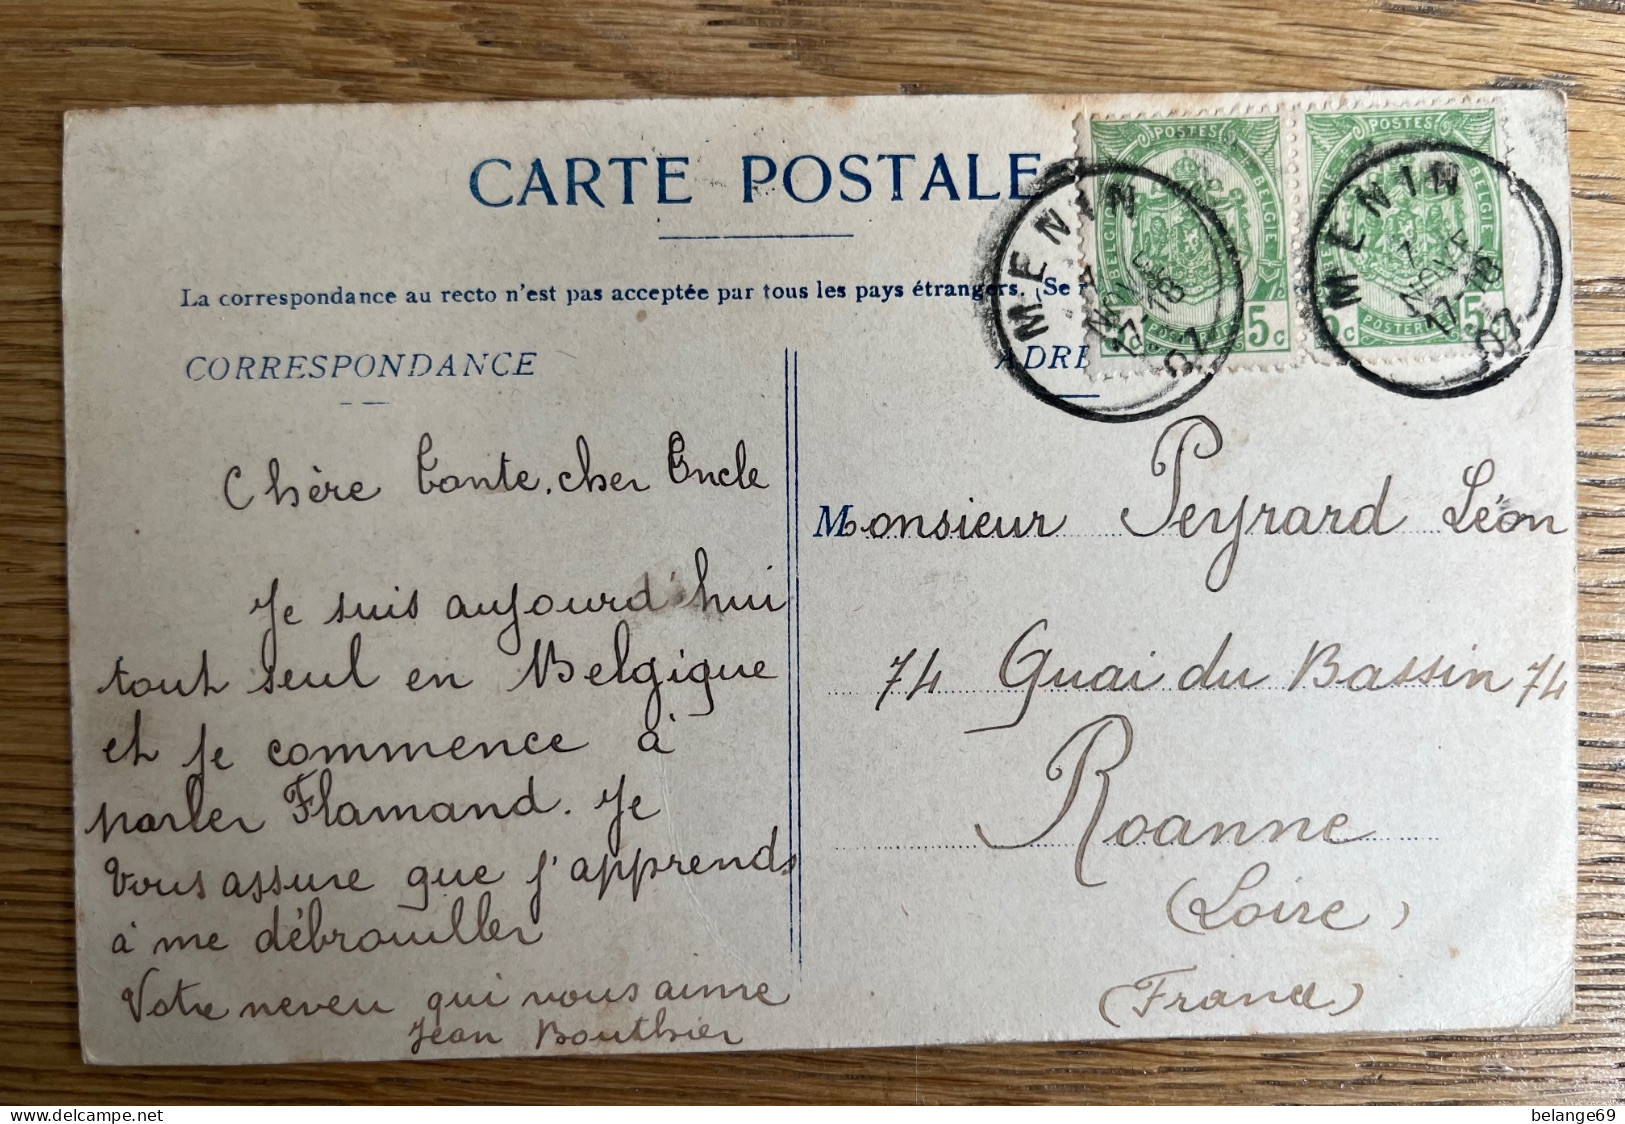 CARTE POSTALE
La correspondance au recto n'est pas acceptée par tous les pays étrangers. (Se r
CORRESPONDANCE
ADRE
POSTES
BELGIQUE
BELGIE
5c
POSTERIJEN
POSTES
BELGIE
5c
POSTERIJEN
5c
MENIN
7
NOVE
17-18
07
MENIN
7
NOVE
17-18
07
Chère Tante, cher Oncle
Je suis aujourd'hui
tout seul en Belgique
et je commence à
parler Flamand. Je
Vous assure que j'apprends
à me débrouiller
Votre neveu qui vous aime
Jean Bouthier
Monsieur Peyrard Léon
74 Quai du Bassin 74
Roanne
(Loire)
(France)
belange69